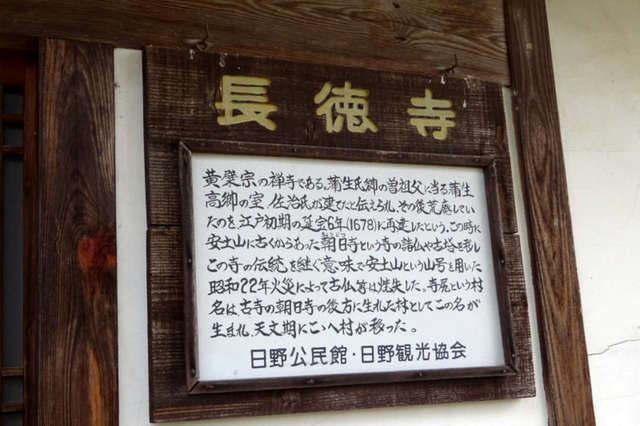 長徳寺
黄檗宗の禅寺である。蒲生氏郷の曽祖父に当る蒲生
高郷の室 佐治氏が建てたと伝えられ、その後荒廃してい
たのを、江戸初期の延宝6年(1678)に再建したという。この時に
安土山に古くからあった朝日寺という寺の諸仏や古塔を移し
この寺の伝統を継ぐ意味で安土山という山号を用いた
昭和22年火災によって古仏等は焼失した。寺尻という村
名は、古寺の朝日寺の後方に生れた村としてこの名が
生まれ、天文期にこゝへ村が移った。
日野公民館・日野観光協会